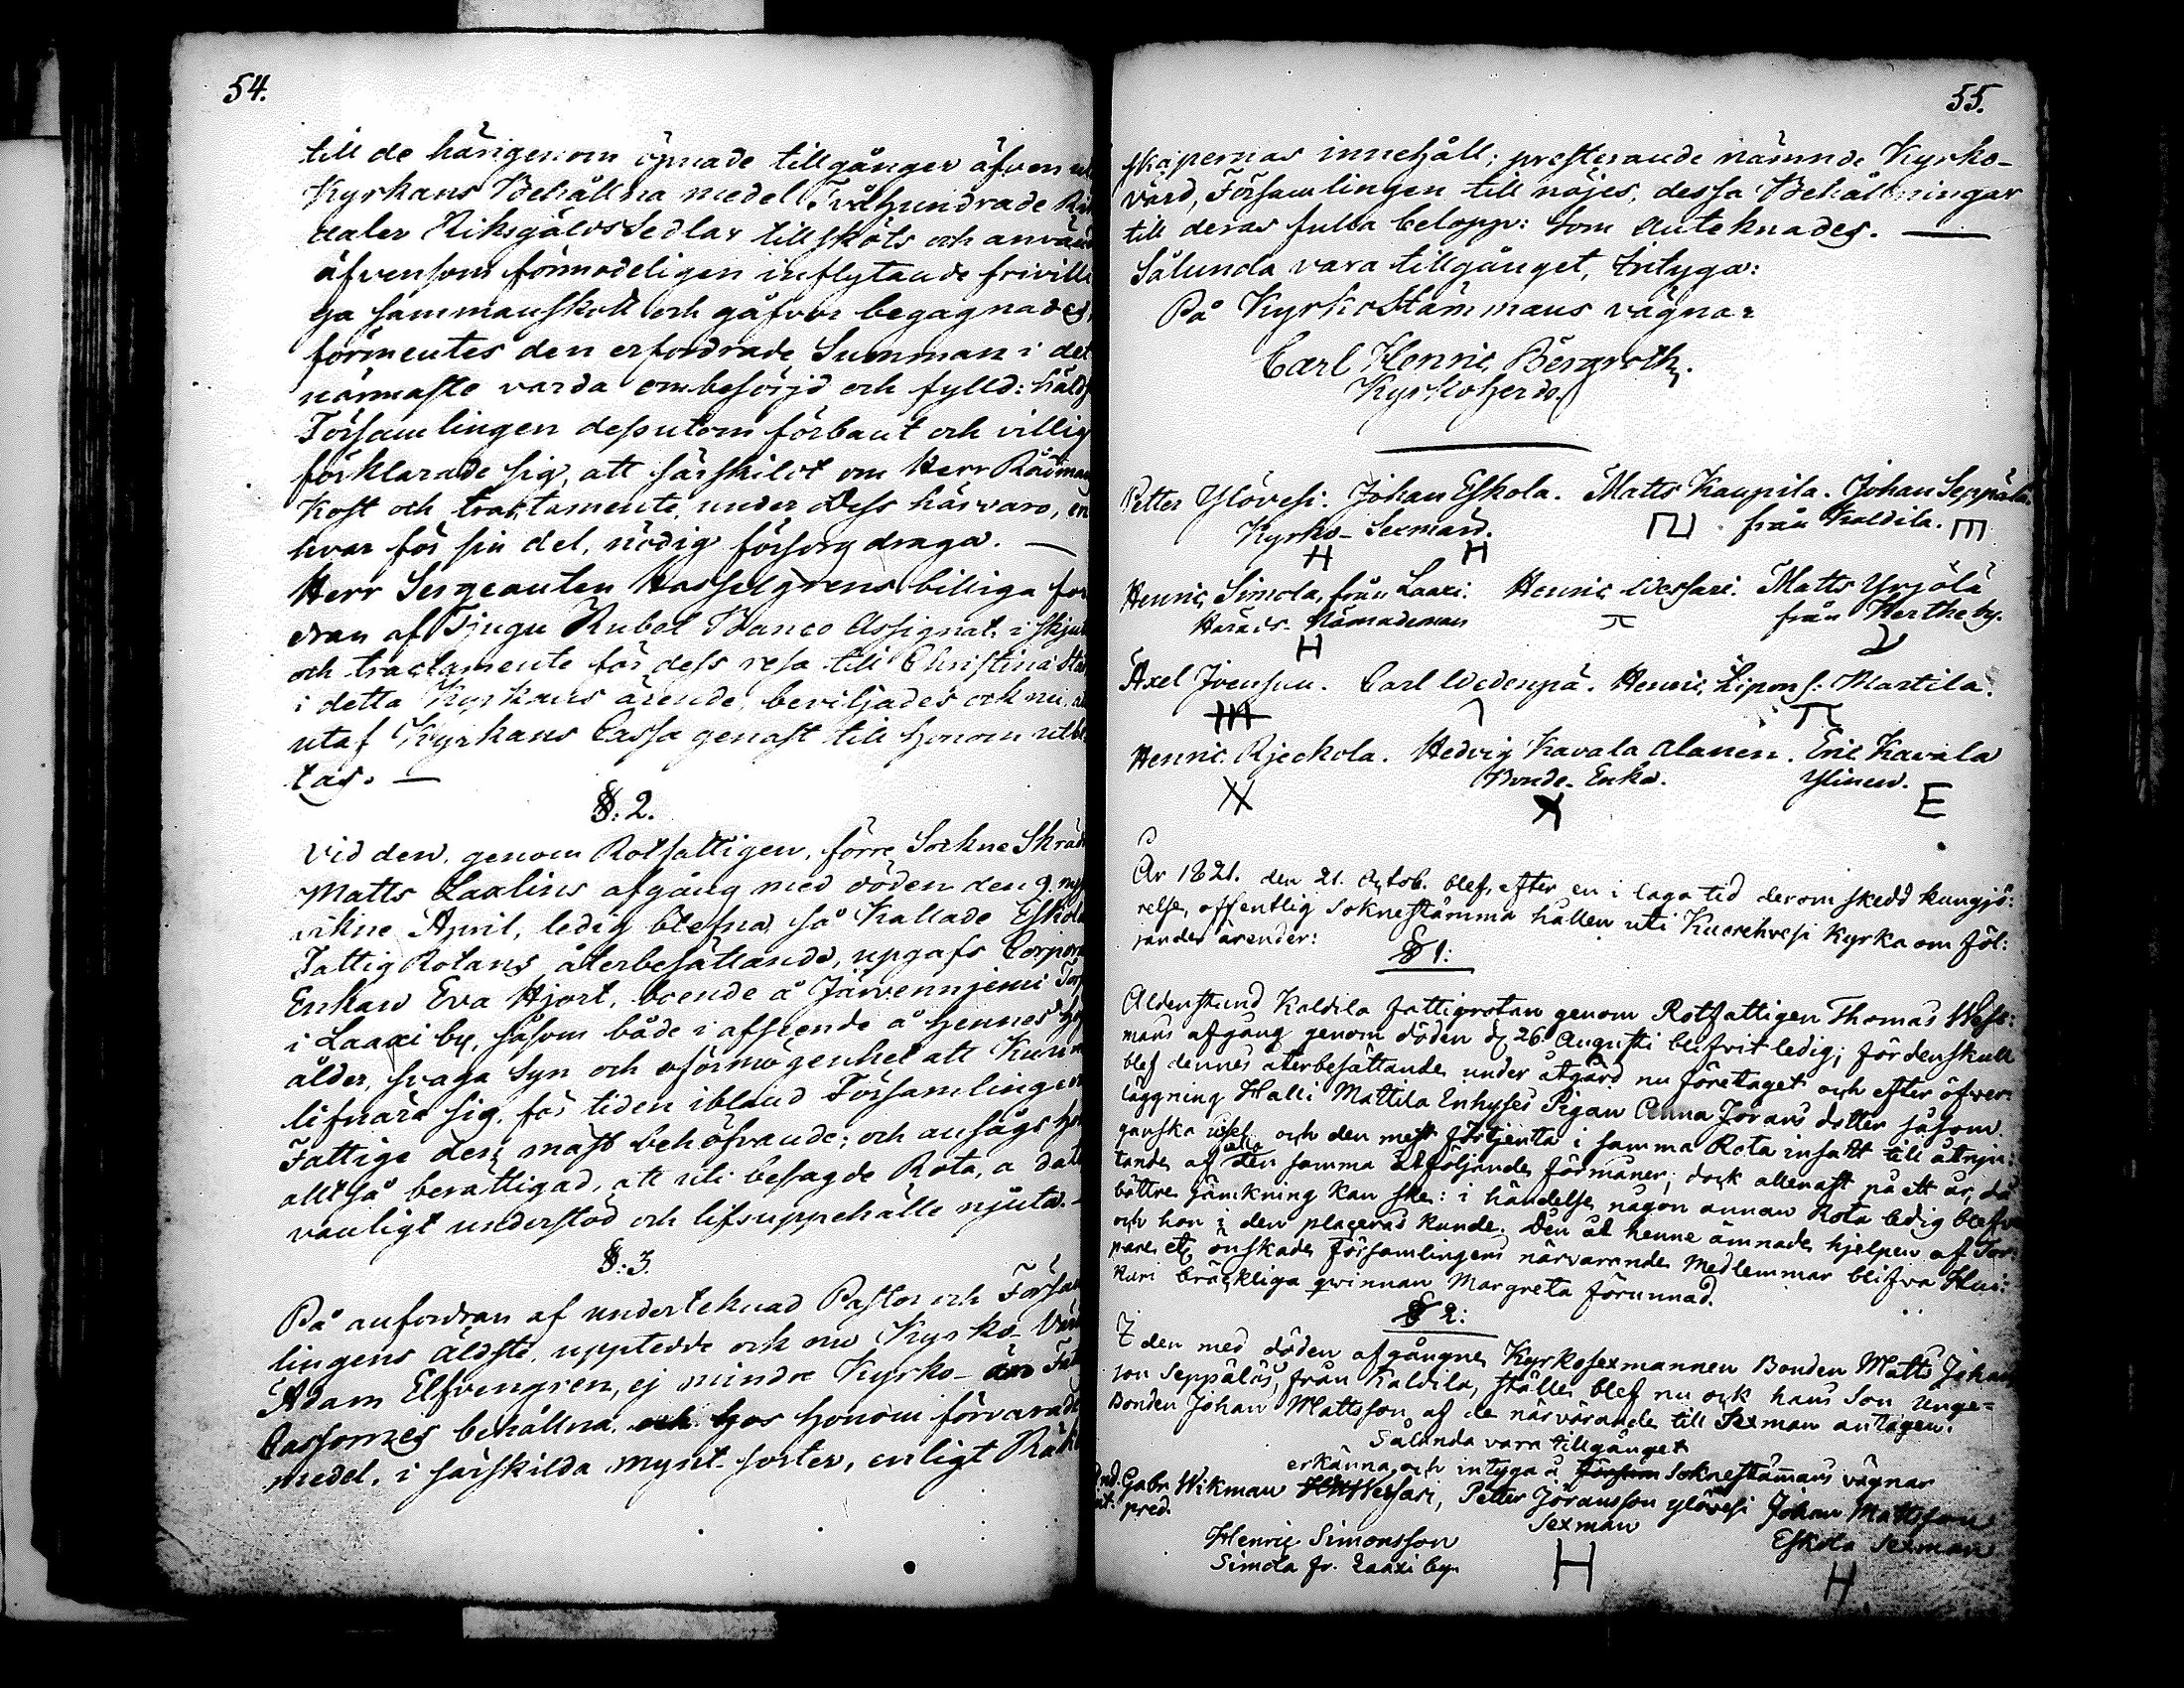 54.
till de härigenom öpnade tillgånger äfven
Kyrkans Behållna medel Tvåhundrade
daler Riksgälds Sedlar tillsköts och
äfvensom förmodeligen inflytande frivilli
ga sammanskott och gåfvor begagnades,
förmentes den erfordrade Summan i det
närmaste varda ombesörjd och fylld:
Församlingen dessutom förbant och villig
förklarade sig, att särskildt om Herr
Kost och tractamente, under Dess härvaro,
hvar för sin del, nödig försorg draga. —
Herr Sergeanten Hasselgrens billiga for
dran af Tjugu Rubel Banco Assignat. i
och tractamente för dess resa till Christina
i detta Kyrkans ärende, beviljades och nu
utaf Kyrkans Cassa genast till honom
tas. —
§. 2.
Vid den, genom Rotfattigen, förre Sockne
Matts Laxlins afgång med döden den 9.
vikne April, ledig blefna så Kallade
Fattig Rotans återbesättande, upgafs
Enkan Eva Hjort, boende å Järvennjemi
i Laaxi by, såsom både i afseende å hennes
ålder, svaga Syn och oförmögenhet att
lifnära sig, för tiden ibland Församlingens
Fattige den mäst behöfvande; och ansågs
alltså berättigad, att uti besagde Rota, a
vanligt understöd och lifsuppehälle njuta. —
§. 3.
På anfordran af underteknad Pastor och
lingens äldste, upptedde och nu Kyrko-
Adam Elfvengren, ej mindre Kyrko- än
Cassornes behållna, hos honom förvarade
medel, i särskilda mynt-sorter, enligt
55.
skapernas innehåll; presterande nämnde Kyrko-
värd, Församlingen till nöjes, dessa Behållningar
till deras fulla belopp: Som anteknades. —
Sålunda vara tillgånget, Intyga:
På KyrkoStämmans vägnar
Carl Henric Bergroth.
Kyrkoherde.
Petter Ylövesi. Johan Eskola. Matts Kaupila. Johan Seppälä.
Kyrko-Sexmän. från Kaldila.
H H
Henric Simola, från Laaxi. Henric Wessari. Matts Yrjölä
Härads-Nämndeman från Hertheby.
H
Axel Joensuu. Carl Wedenpä. Henric Martila.
Henric Rjeckola. Hedvig Kavala Alanen. Eric Kavala
Bonde-Enka. Ylinen.
X X E
År 1821. den 21. Octob. blef, efter en i laga tid derom skedd kungjö:
relse, offentlig Soknestämma hållen uti Kuorehvesi Kyrka om föl:
jande ärender:
§ 1:
Aldenstund Kaldila fattigrotan genom Rotfattigen Thomas West:
mans afgång genom döden d. 26 Augusti blifvit ledig; fördenskull
blef dennes återbesättande under åtgärd nu företaget och efter öfver:
läggning Halli Mattila Inhyses Pigan Anna Jörans dotter såsom
ganska usel och den mest förtjenta i samma Rota insatt till åtnju:
tande af den samma åtföljande förmåner; dock allenast på ett år, då
bättre jämkning kan ske: i händelse någon annan Rota ledig blefve
och hon i den placeras kunde. Den åt henne ämnade hjelpen af Tor:
pare etc. önskade Församlingens närvarande Medlemmar blifva
bräckliga qvinnan Margreta förunnad.
§ 2:
I den med döden afgångne Kyrkosexmannen Bonden Matts Johans
son Seppäläs, från Kaldila, ställe blef nu ock hans Son Unge-
Bonden Johan Mattsson af de närvarande till Sexman antagen.
Sålunda vara tillgånget
erkänna och intyga å Soknestämmans vägnar
Gabr. Wikman Wessari, Petter Jöransson Ylövesi Johan Mattsson
pred. Sexman Eskola Sexman
Henric Simonsson
Simola fr. Laaxi by
H H